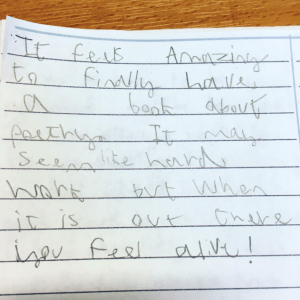 It feels Amazing
to finally have
a book about
poetry. It may
seem like hard
work but when
it is out there
you feel alive!